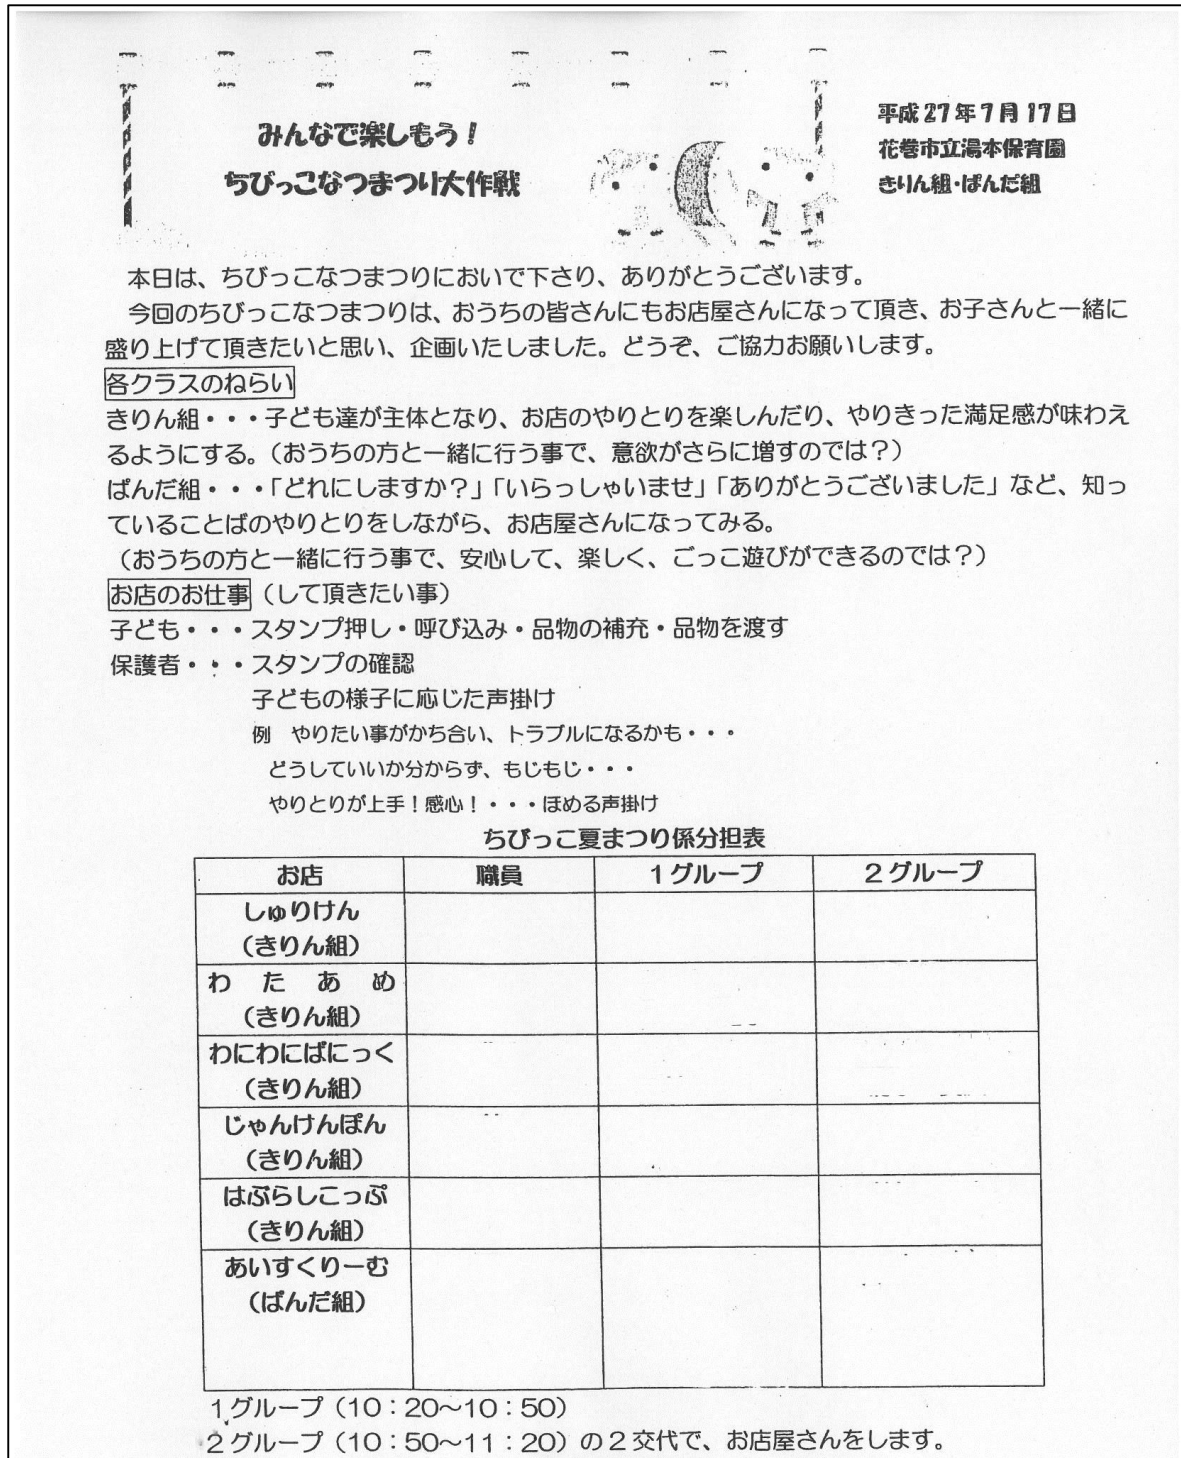 みんなで楽しもう！
ちびっこなつまつり大作戦
平成27年7月17日
花巻市立湯本保育園
きりん組・ぱんだ組
本日は、ちびっこなつまつりにおいで下さり、ありがとうございます。
今回のちびっこなつまつりは、おうちの皆さんにもお店屋さんになって頂き、お子さんと一緒に
盛り上げて頂きたいと思い、企画いたしました。どうぞ、ご協力お願いします。
各クラスのねらい
きりん組・・・子ども達が主体となり、お店のやりとりを楽しんだり、やりきった満足感が味わえ
るようにする。（おうちの方と一緒に行う事で、意欲がさらに増すのでは？）
ぱんだ組・・・「どれにしますか？」「いらっしゃいませ」「ありがとうございました」など、知っ
ていることばのやりとりをしながら、お店屋さんになってみる。
（おうちの方と一緒に行う事で、安心して、楽しく、ごっこ遊びができるのでは？）
お店のお仕事（して頂きたい事）
子ども・・・スタンプ押し・呼び込み・品物の補充・品物を渡す
保護者・・・スタンプの確認
子どもの様子に応じた声掛け
例　やりたい事がかち合い、トラブルになるかも・・・
どうしていいか分からず、もじもじ・・・
やりとりが上手！感心！・・・ほめる声掛け
ちびっこ夏まつり係分担表
お店　職員　1グループ　2グループ
しゅりけん
（きりん組）
わ　た　あ　め
（きりん組）
わにわにぱにっく
（きりん組）
じゃんけんぽん
（きりん組）
はぶらしこっぷ
（きりん組）
あいすくりーむ
（ぱんだ組）
1グループ（10：20～10：50）
2グループ（10：50～11：20）の2交代で、お店屋さんをします。